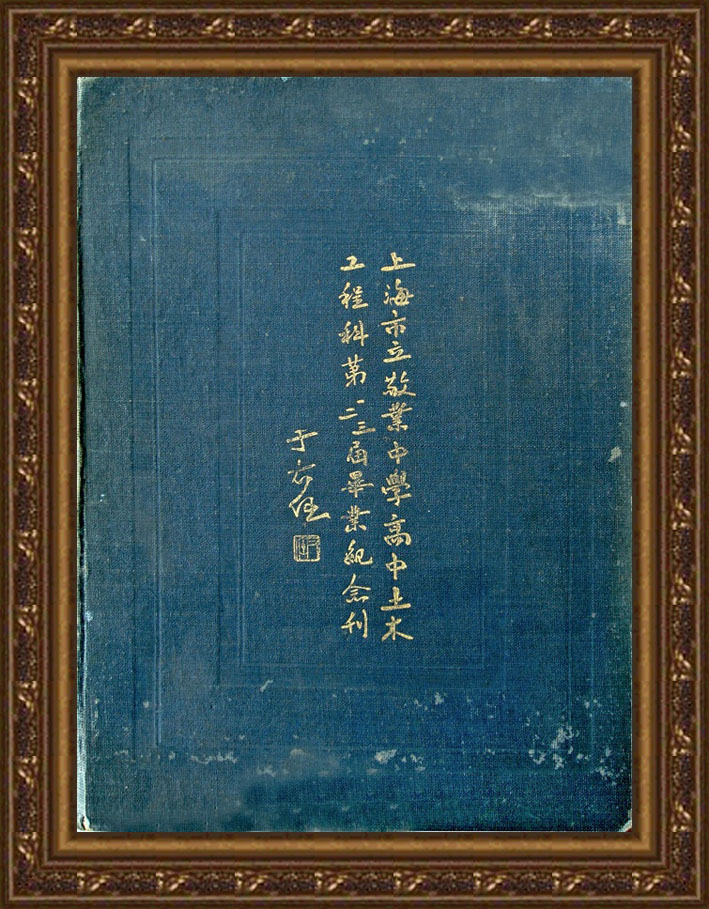 上海市立敬業中學高中土木
工程科第一二三届畢業紀念刊
于右任